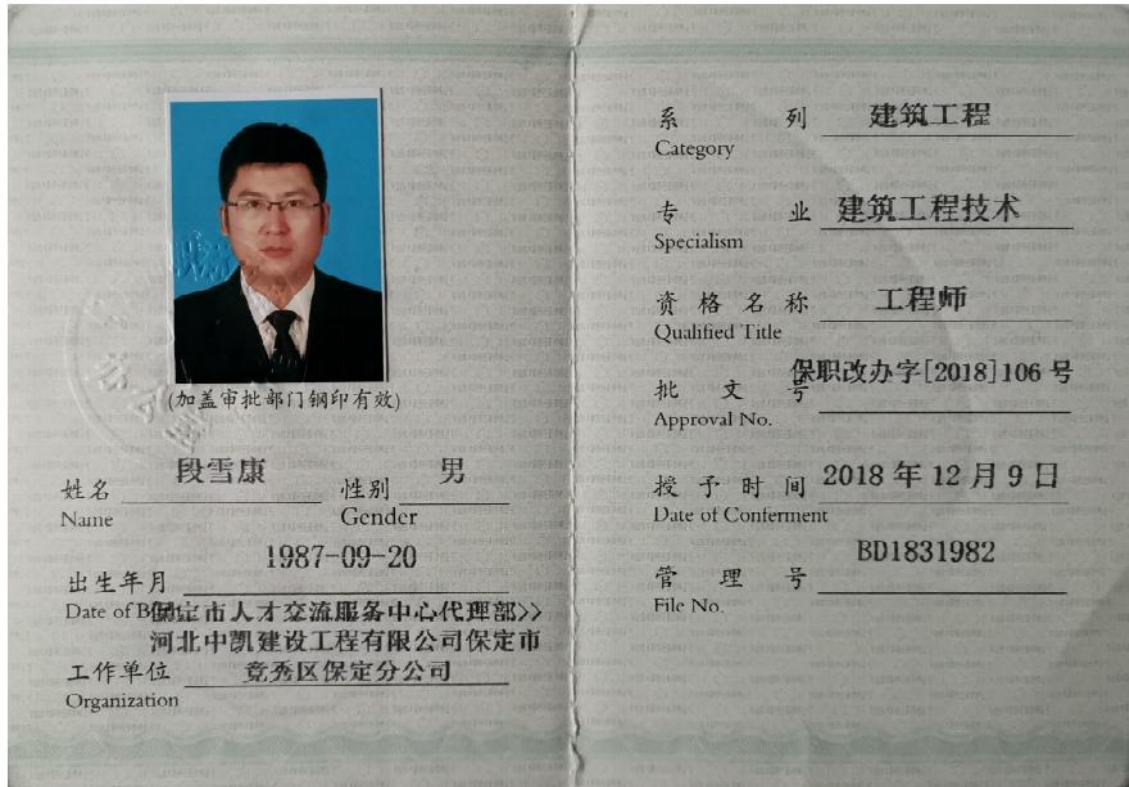 (加盖审批部门钢印有效)
姓名 段雪康 性别 男
Name Gender
1987-09-20
出生年月
Date of B
保定市人才交流服务中心代理部>>
河北中凯建设工程有限公司保定市
工作单位 竞秀区保定分公司
Organization
系列 建筑工程
Category
专业 建筑工程技术
Specialism
资格名称 工程师
Qualified Title
批文号 保职改办字[2018]106 号
Approval No.
授予时间 2018 年 12 月 9 日
Date of Conferment
管理号 BD1831982
File No.
办公室